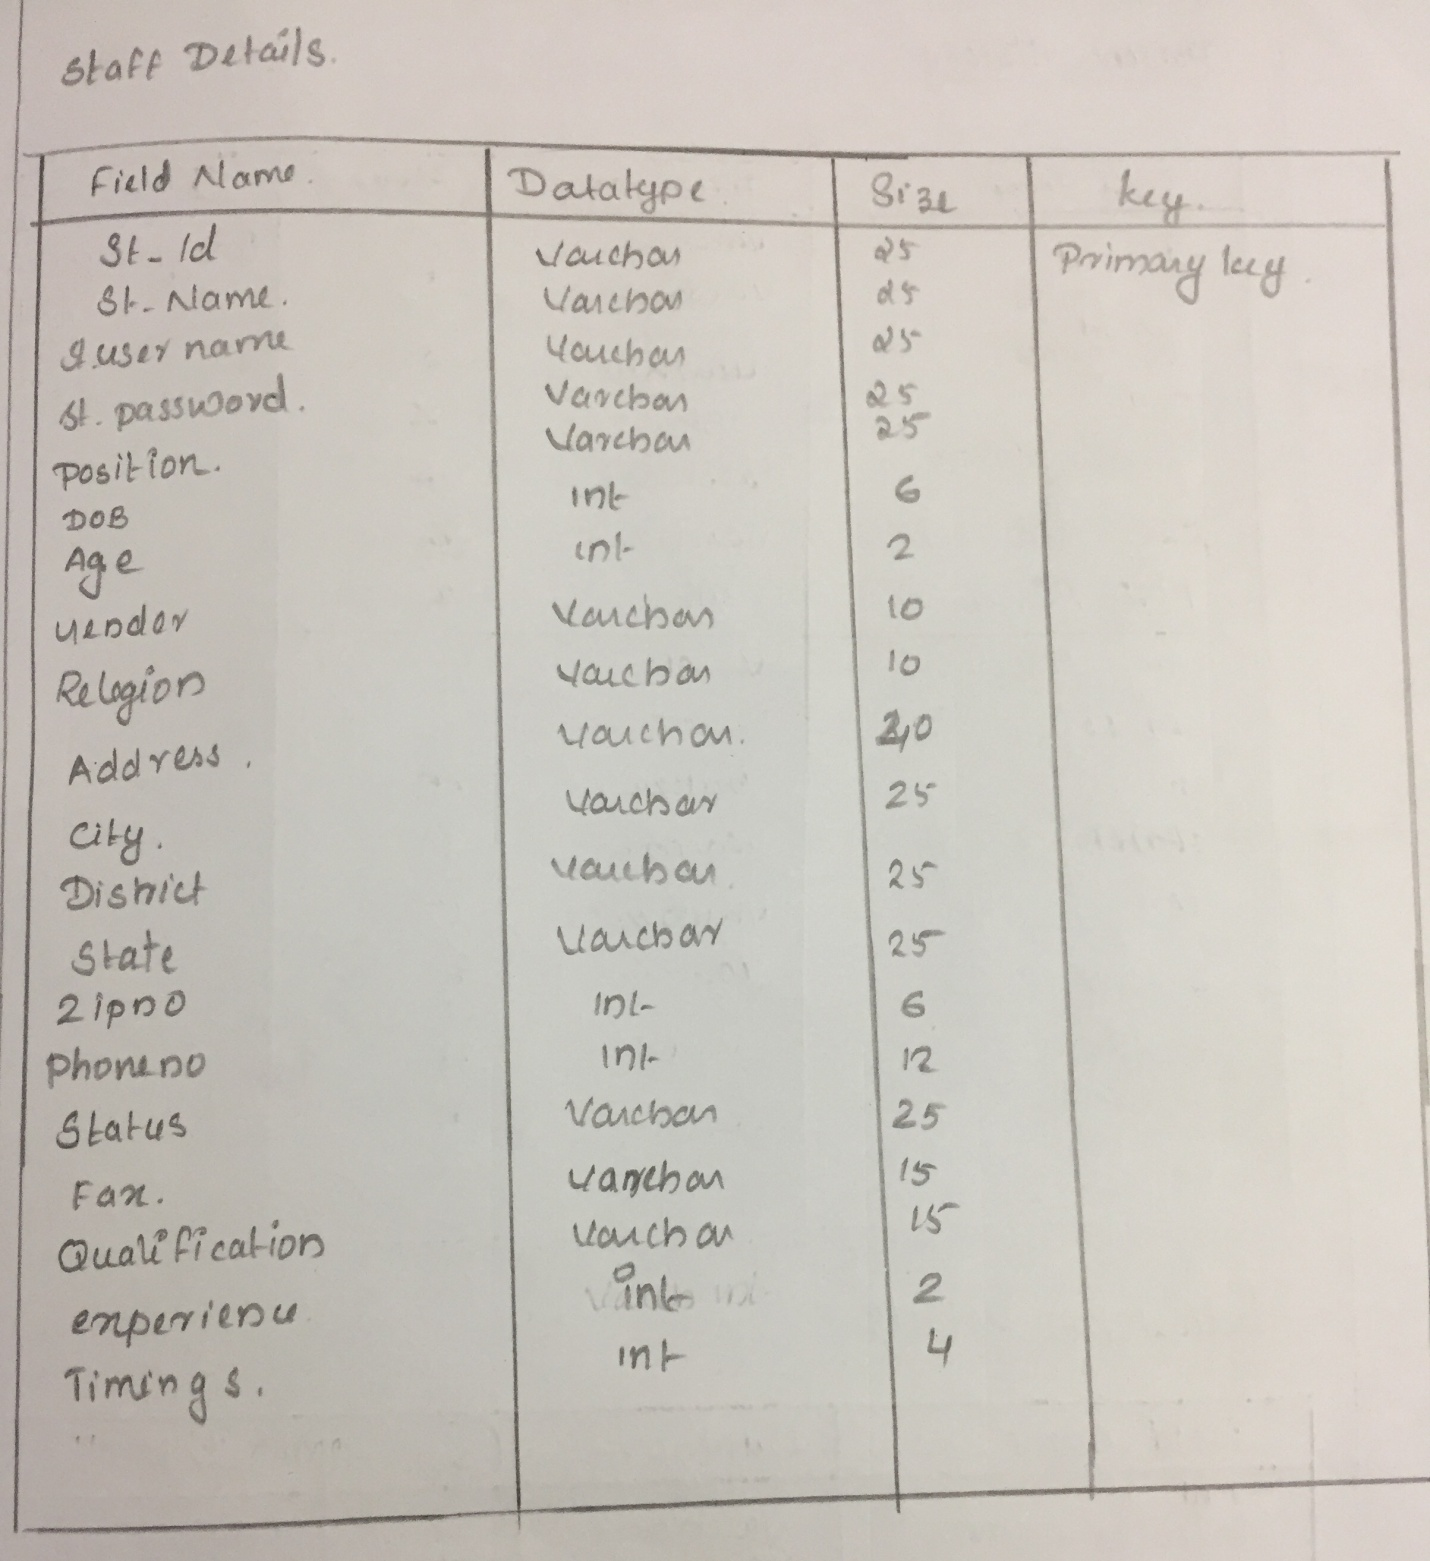 Staff Details.
Field Name. Datatype Size key.
St_Id Varchar 25 Primary key.
St_Name. Varchar 25
St.user name Varchar 25
St. password. Varchar 25
Position. Varchar 25
DOB int 6
Age int 2
Gender Varchar 10
Relegion Varchar 10
Address. Varchar. 20
City. Varchar 25
District Varchar. 25
State Varchar 25
Zipno Int 6
Phoneno Int 12
Status Varchar 25
Fax. Varchar 15
Qualification Varchar 15
experience int 2
Timings. int 4